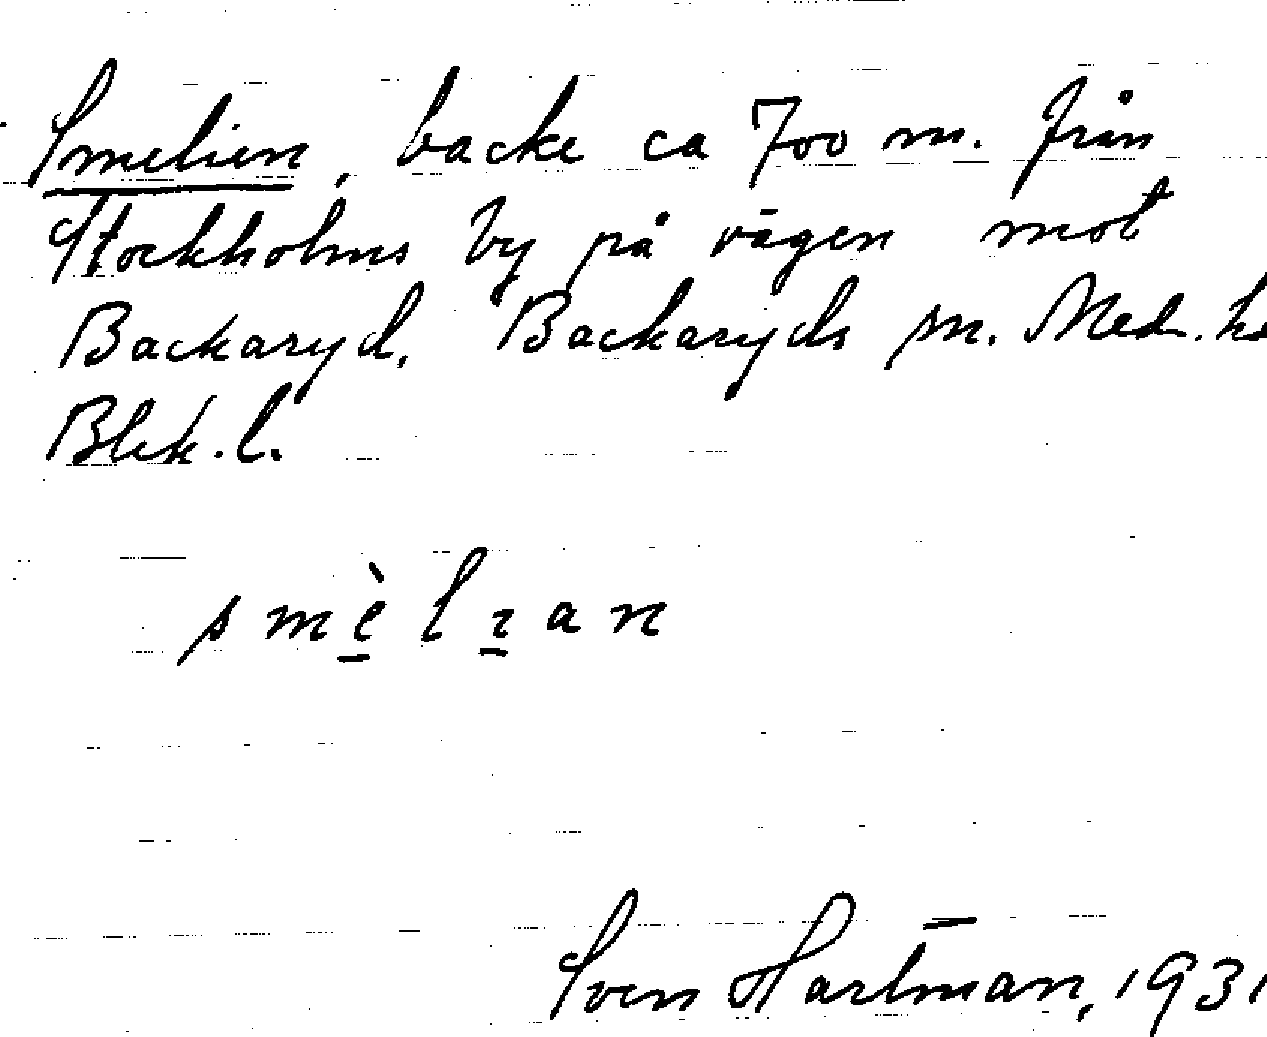 Smelien, backe ca 700 m. från
Stockholms by på vägen mot
Backaryd. Backaryds sn. Med. h
Blek. l.
smèlıan
Sven Hartman, 1931